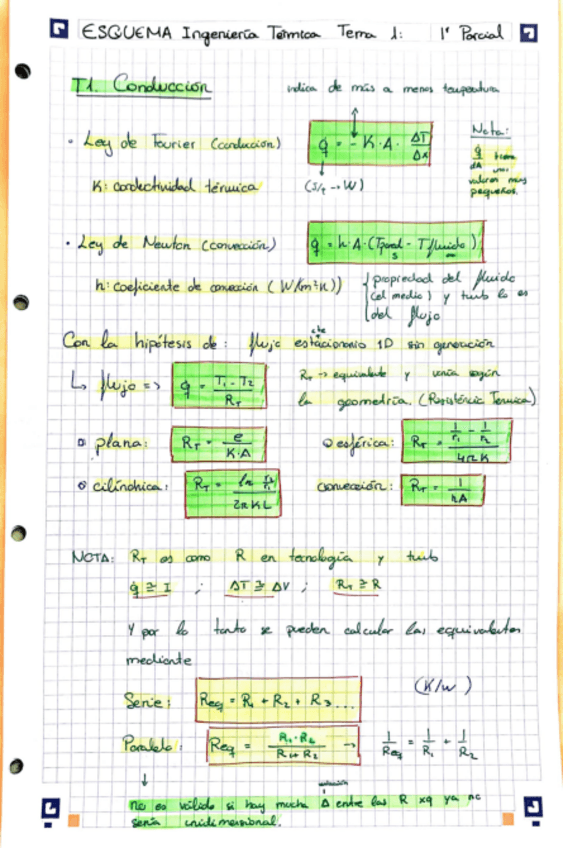 ESQUEMA Ingeniería Térmica Tema 1: 1º Parcial
T1. Conducción
indica de más a menos temperatura
· Ley de Fourier (conducción)
q̇ = - K · A · ΔT/Δx
Nota:
q̇/dA tiene unos valores muy pequeños.
K: conductividad térmica
(J/s → W)
· Ley de Newton (convección)
q̇ = h · A · (Tpared - Tfluido)
s ∞
h: coeficiente de convección (W/(m²K))
propiedad del fluido
(el medio) y tmb lo es
del flujo
Con la hipótesis de: flujo estacionario 1D sin generación
cte
↳ flujo => q̇ = (T₁ - T₂)/R_T
R_T → equivalente y varía según
la geometría. (Resistencia Termica)
plana: R_T = e/(K·A)
esférica: R_T = (1/r₁ - 1/r₂)/(4πK)
cilíndrica: R_T = ln(r₂/r₁)/(2πKL)
convección: R_T = 1/(hA)
NOTA: R_T es como R en tecnología y tmb
q̇ ≅ I ; ΔT ≅ ΔV ; R_T ≅ R
Y por lo tanto se pueden calcular las equivalentes
mediante
(K/W)
Serie: Req = R₁ + R₂ + R₃ ...
Paralelo: Req = (R₁·R₂)/(R₁+R₂) → 1/Req = 1/R₁ + 1/R₂
↓
no es válido si hay mucha Δ entre las R xq ya no
sería unidimensional.